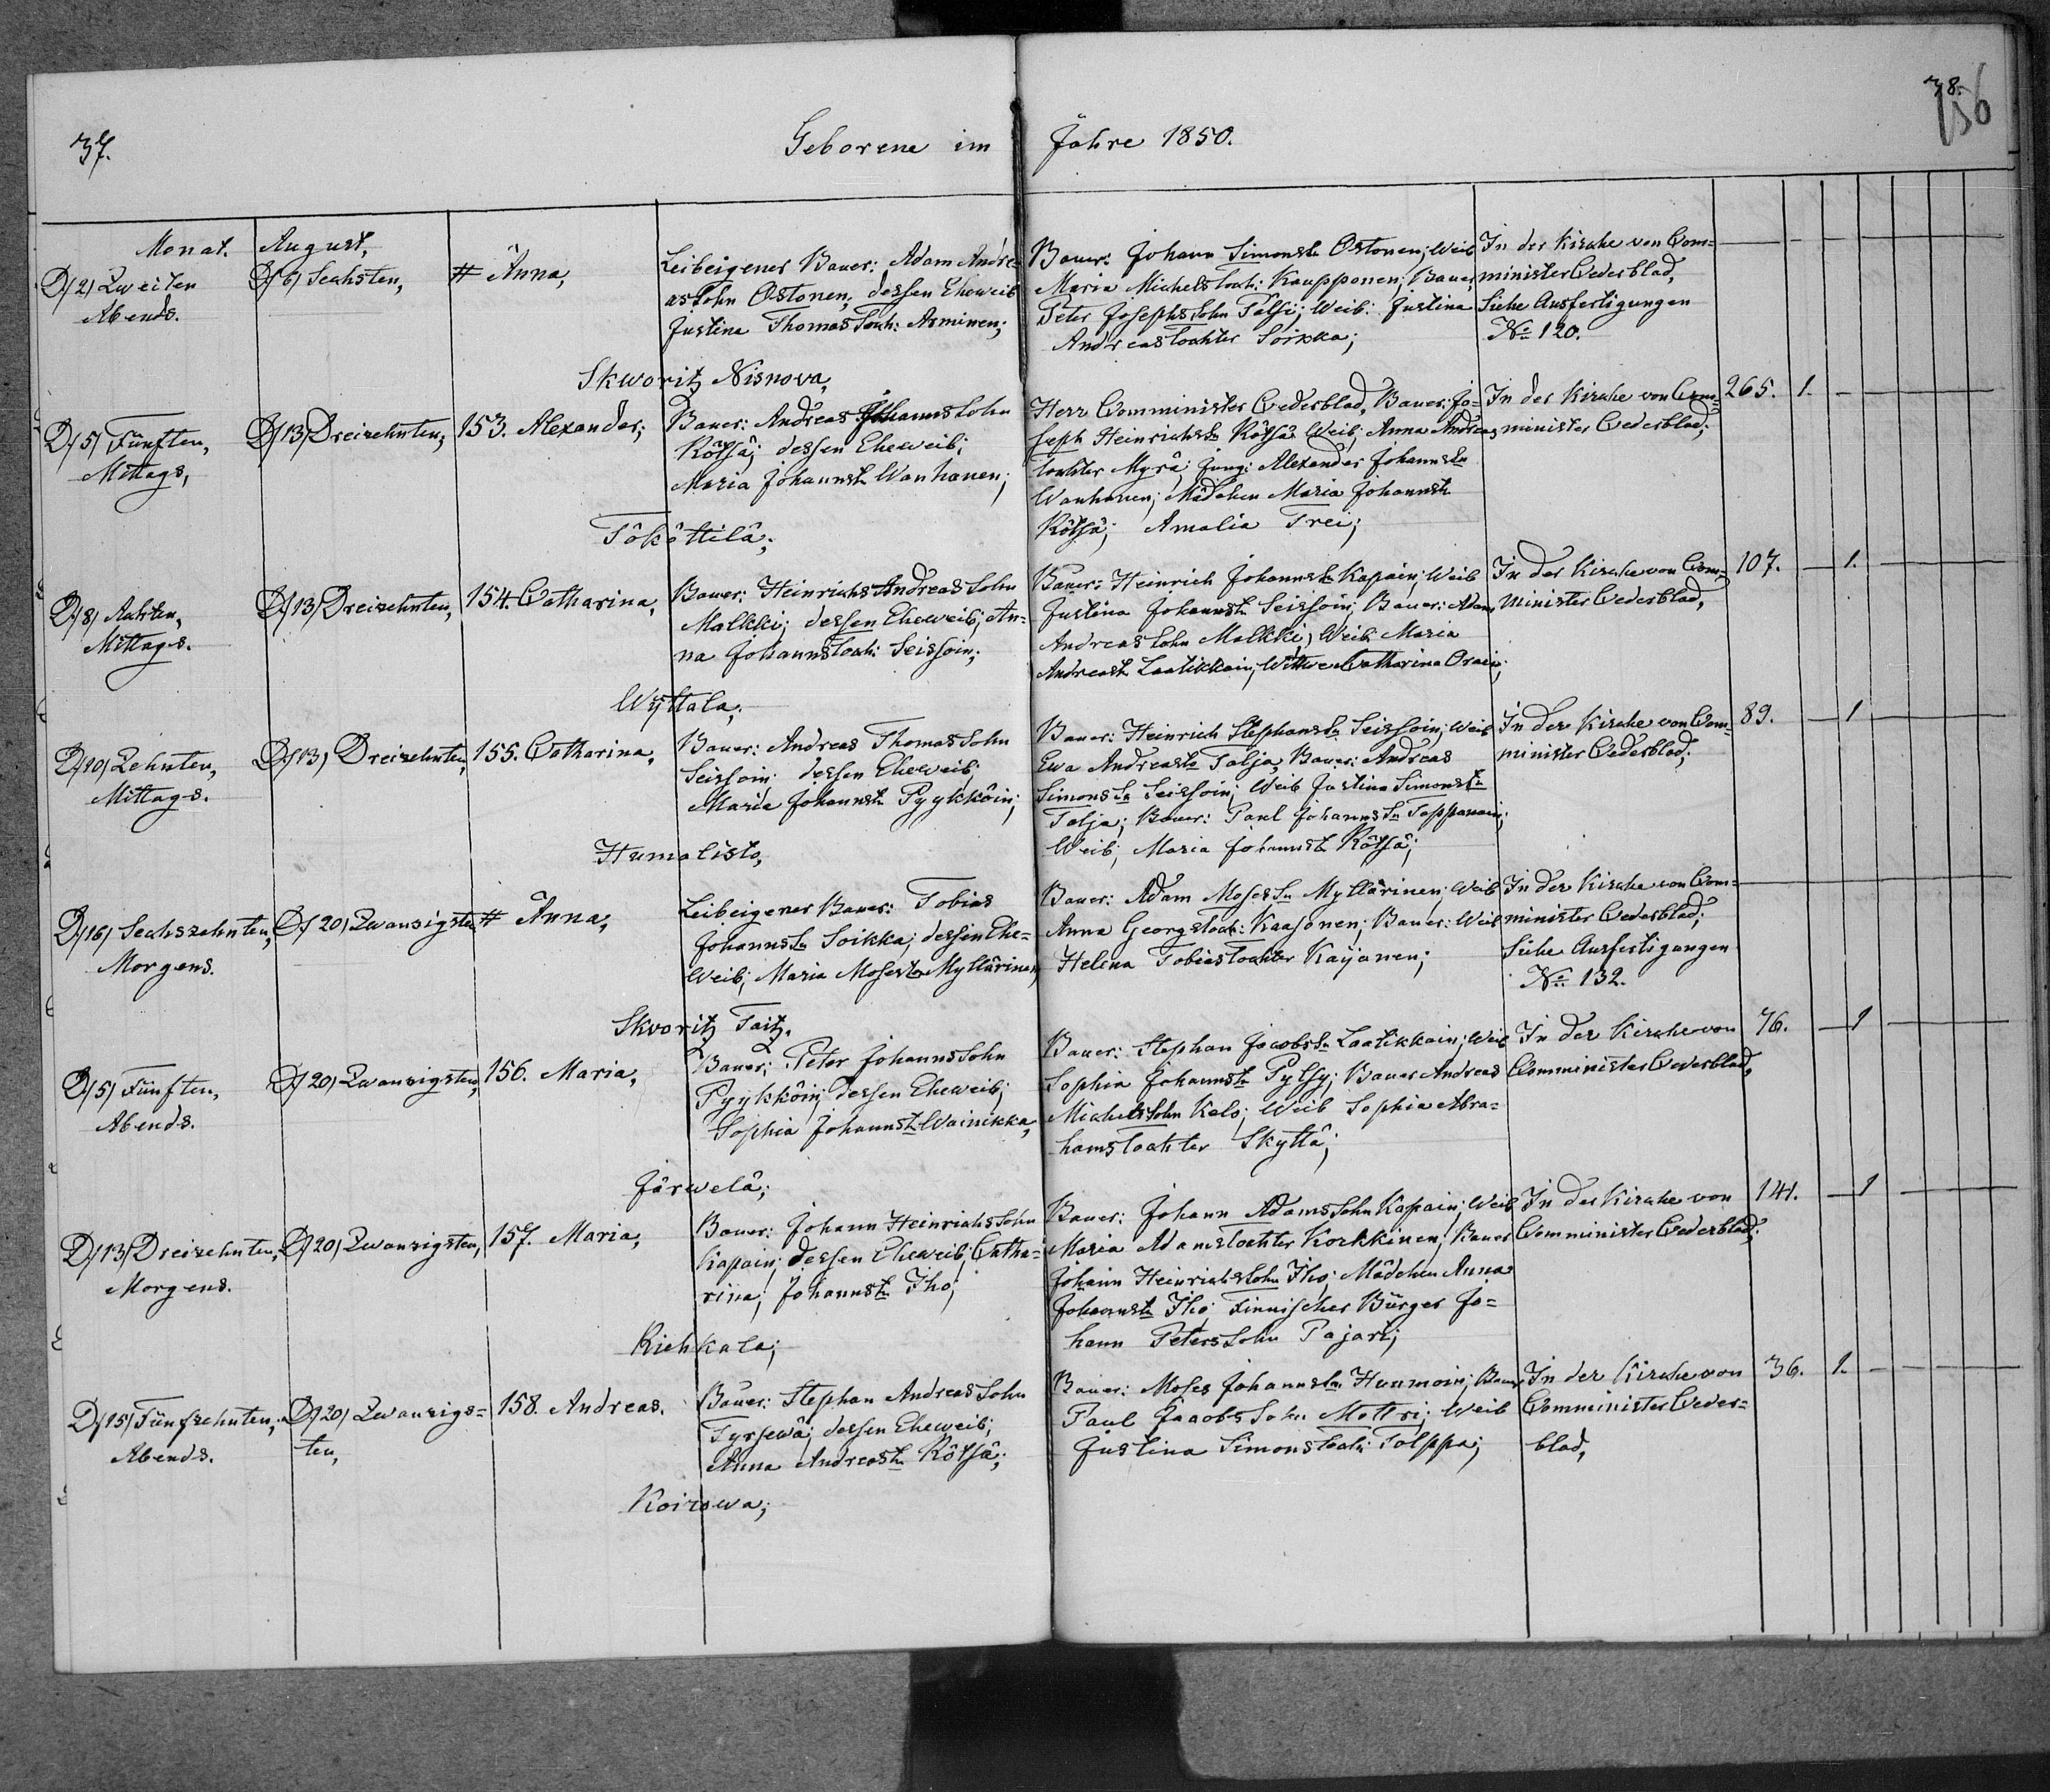 37.
Geborene im Jahre 1850.
38.
156
Monat. August,
D/2/ Zweiten
Abends.
D/6/ Sechsten,
# Anna,
Leibeigener Bauer: Adam Andre-
as Sohn Ostonen; dessen Eheweib
Justina Thomas Toch: Asminen;
Skworitz Nisnova,
Bauer: Johann Simons Sn Ostonen; Weib
Maria Michels Toch: Kaupponen; Bauer
Peter Josephs Sohn Talsi; Weib: Justina
Andreas Tochter Soikka;
In der Kirche von Com=
minister Cederblad,
Siehe Ausfertigungen
No 120.
D/5/ Fünften,
Mittags,
D/13/ Dreizehnten,
153. Alexander;
Bauer: Andreas Johanns Sohn
Rötsä; dessen Eheweib;
Maria Johanns Tr Wanhanen;
Tököttilä;
Herr Comminister Cederblad, Bauer: Jo=
seph Heinrichs Sn Rötsä Weib; Anna Andreas
tochter Myrä; Jung: Alexander Johanns Sn
Wanhanen; Mädchen Maria Johanns Tr
Rötsä; Amalia Frei;
In der Kirche von Com=
minister Cederblad;
265. 1.
D/8/ Achten,
Mittags.
D/13/ Dreizehnten,
154. Catharina,
Bauer: Heinrichs Andreas Sohn
Malkki; dessen Eheweib; An=
na Johanns Toch: Seissoin;
Wyttala;
Bauer: Heinrich Johanns Sn Kapain; Weib
Justina Johanns Tr Seissoin; Bauer: Adam
Andreas Sohn Malkki; Weib Maria
Andreas Tr Laatikkain; Wittwe Catharina Orain;
In der Kirche von Com=
minister Cederblad,
107. 1.
D/10/ Zehnten,
Mittags.
D/13/ Dreizehnten,
155. Catharina,
Bauer: Andreas Thomas Sohn
Seissoin; dessen Eheweib;
Maria Johanns Tr Pyykköin;
Humalisto,
Bauer: Heinrich Stephans Sn Seissoin; Weib
Ewa Andreas Tr Talja, Bauer: Andreas
Simons Sn Seissoin; Weib Justina Simons Tr
Talja; Bauer: Paul Johanns Sn Tappanain;
Weib; Maria Johanns Tr Rötsä;
In der Kirche von Com=
minister Cederblad;
89. 1
D/16/ Sechszehnten,
Morgens.
D/20/ Zwanzigsten
# Anna,
Leibeigener Bauer: Tobias
Johanns Sn Soikka; dessen Ehe=
Weib; Maria Moses Tr Myllärinen,
Skvoritz Taitz,
Bauer: Adam Moses Sn Myllärinen; Weib
Anna Georgs Toch: Kaasonen; Bauer: Weib
Helena Tobias Tochter Kaijanen;
In der Kirche von Com=
minister Cederblad;
Siehe Ausfertigungen
No 132.
D/5/ Fünften,
Abends.
D/20/ Zwanzigsten,
156. Maria,
Bauer; Peter Johanns Sohn
Pyykköin; dessen Eheweib;
Sophia Johanns Tr Wainikka,
Järwelä;
Bauer: Stephan Jacobs Sn Laatikkain; Weib
Sophia Johanns Tr Pylsy; Bauer Andreas
Michels Sohn Kelo; Weib Sophia Abra=
hams Tochter Skyttä;
In der Kirche von
Comminister Cederblad,
76. 1
D/13/ Dreizehnten,
Morgens.
D/20/ Zwanzigsten,
157. Maria,
Bauer: Johann Heinrichs Sohn
Kapain; dessen Eheweib; Catha=
rina; Johanns Tr Iho;
Riehkala;
Bauer: Johann Adams Sohn Kapain; Weib
Maria Adams Tochter Korkkinen; Bauer
Johann Heinrichs Sohn Iho; Mädchen Anna
Johanns Tr Iho; Finnischer Bürger Jo=
hann Peters Sohn Pajari;
In der Kirche von
Comminister Cederblad;
141. 1
D/15/ Fünfzehnten,
Abends.
D/20/ Zwanzigs=
ten,
158. Andreas.
Bauer: Stephan Andreas Sohn
Tyrsewä; dessen Eheweib;
Anna Andreas Tr Rötsä;
Koirowa;
Bauer: Moses Johanns Sn Hanmoin; Bauer
Paul Jacobs Sohn Mottri; Weib
Justina Simons Toch: Tolppa;
In der Kirche von
Comminister Ceder=
blad,
36. 1.